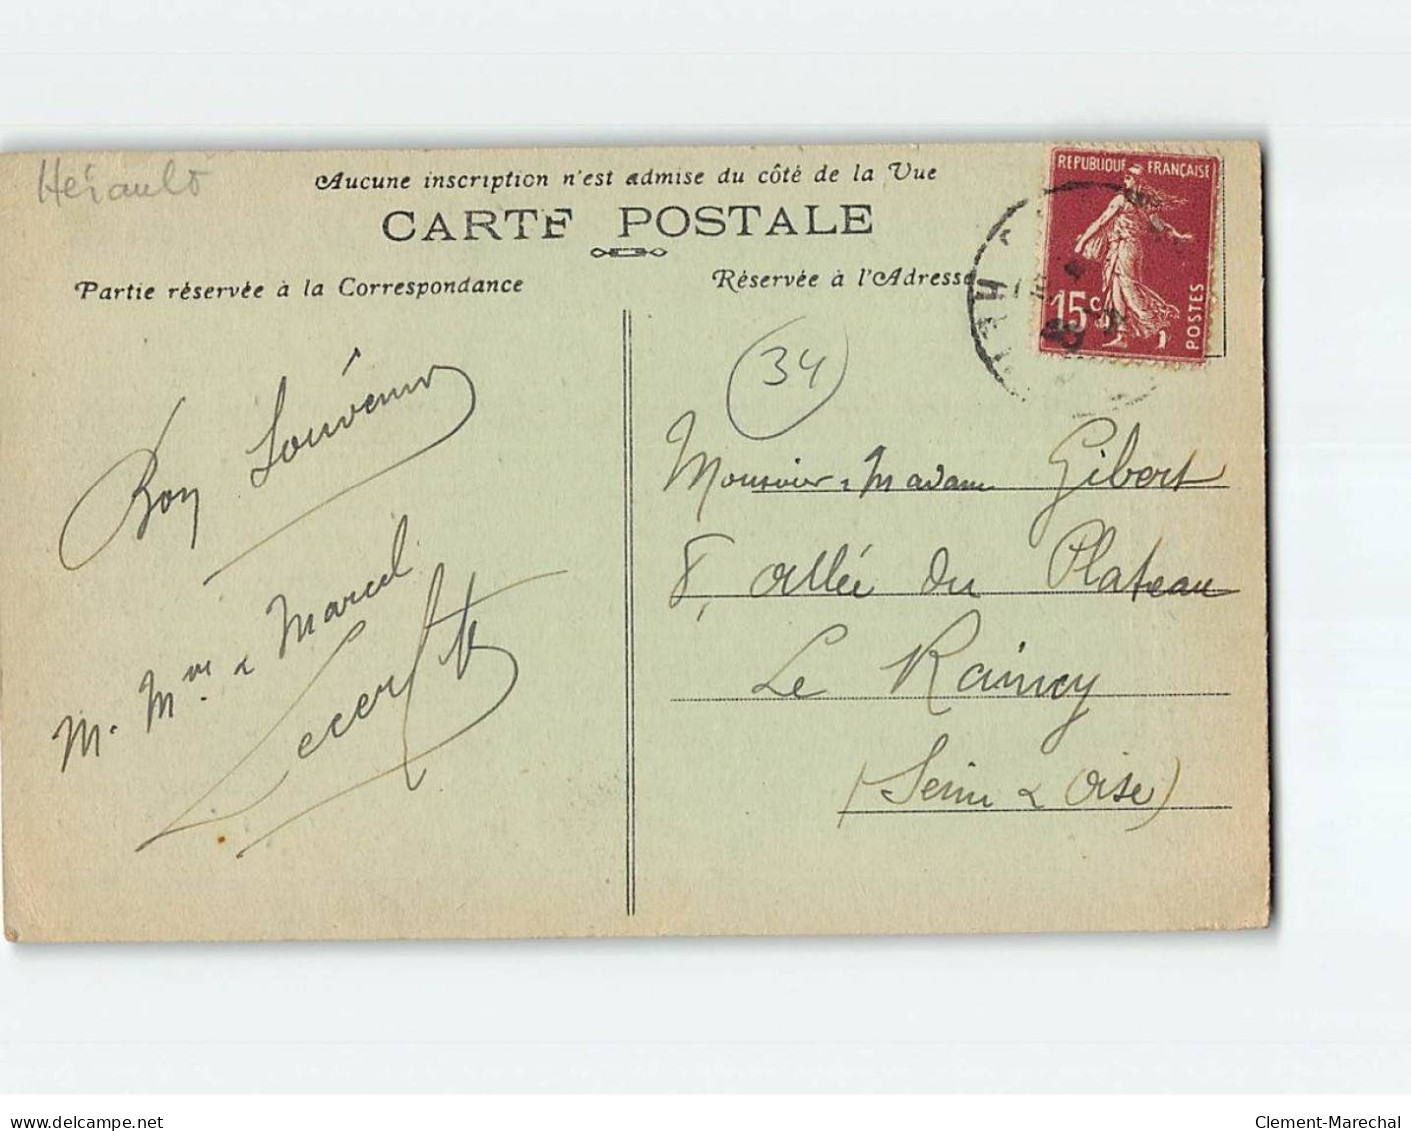 Hérault
Aucune inscription n'est admise du côté de la Vue
CARTE POSTALE
Partie réservée à la Correspondance
Réservée à l'Adresse
REPUBLIQUE FRANÇAISE
15c
POSTES
34
Bon Souvenir
M. Mme & Marcel
Lecerf
Monsieur & Madame Gibert
8, allée du Plateau
Le Raincy
(Seine & Oise)
delcampe.net
Clement-Marechal